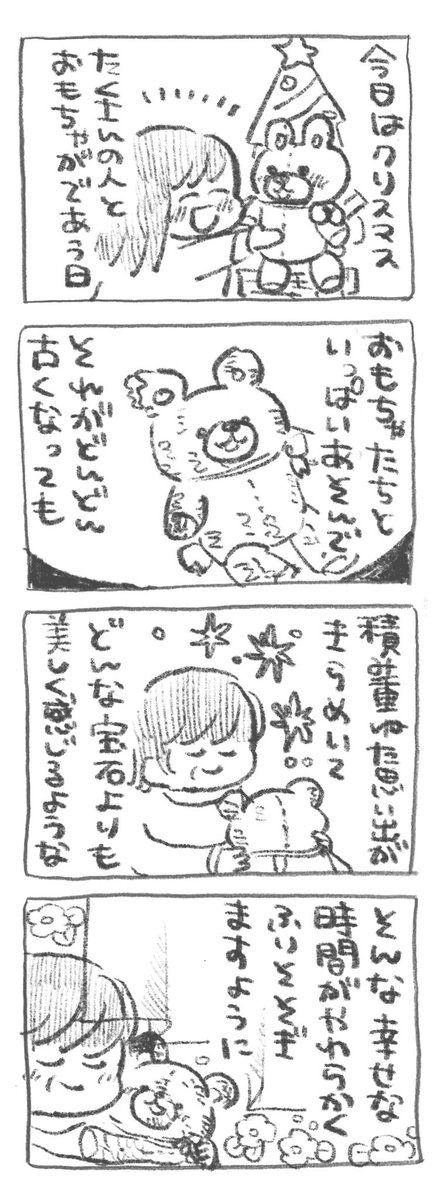 今日はクリスマス
たくさんの人と
おもちゃがであう日
おもちゃたちと
いっぱいあそんで、
それがどんどん
古くなっても
積み重ねた思い出が
きらめいて
どんな宝石よりも
美しく感じるような
そんな幸せな
時間がやわらかく
ふりそそぎ
ますように